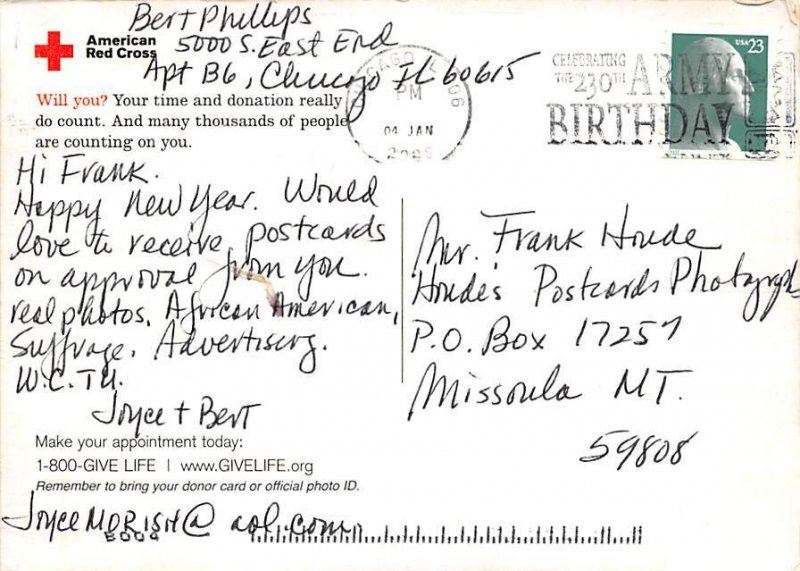 Bert Phillips
5000 S. East End
Apt B6, Chicago IL 60615
American
Red Cross
Will you? Your time and donation really
do count. And many thousands of people
are counting on you.
PM
04 JAN
CELEBRATING
THE 230TH ARMY
BIRTHDAY
USA 23
Hi Frank.
Happy New Year. Would
love to receive postcards
on approval from you.
real photos, African American,
Suffrage, Advertising.
W.C.T.U.
Joyce + Bert
Mr. Frank Houde
Houde's Postcards Photography
P.O. Box 17257
Missoula MT.
59808
Make your appointment today:
1-800-GIVE LIFE | www.GIVELIFE.org
Remember to bring your donor card or official photo ID.
JoyceMORISH@aol.com